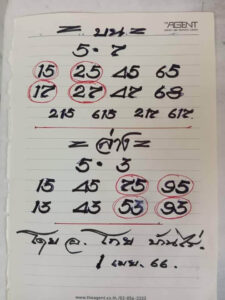 THE AGENT
= บน =
5 · 7
15 25 45 65
17 27 47 68
215 615 217 617
= ล่าง =
5 · 3
15 45 75 95
13 43 53 93
โดย อ. โกย บ้านไร่.
1 เมย. 66.